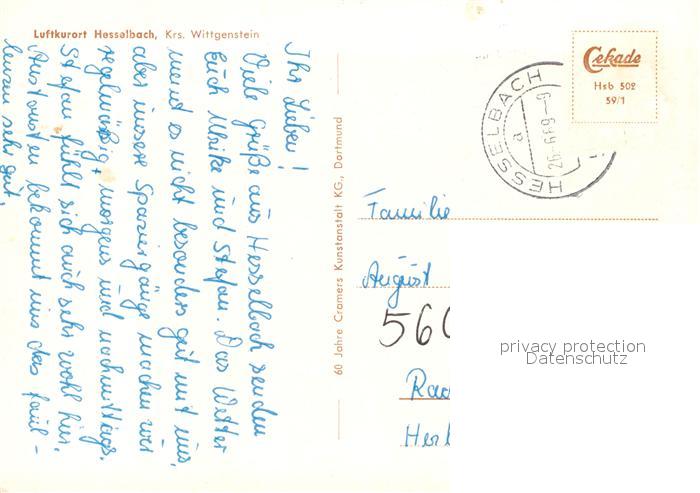 Luftkurort Hesselbach, Krs. Wittgenstein
Ihr Lieben!
Viele Grüße aus Hesselbach senden
Euch Ulrike und Stefan. Das Wetter
meint es nicht besonders gut mit uns,
aber unsere Spaziergänge machen wir
regelmäßig, morgens und nachmittags.
Stefan fühlt sich auch sehr wohl hier.
Ansonsten bekommt uns das faul-
lenzen sehr gut.
60 Jahre Cramers Kunstanstalt KG., Dortmund
Cekade
Hsb 502
59/1
HESSELBACH
a
26.-6.69-9
Familie
August
560
Rad
Herb
privacy protection
Datenschutz